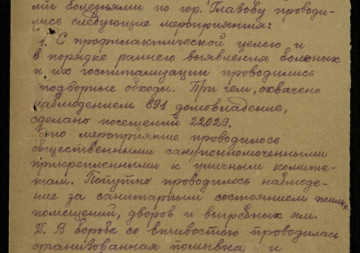 ми болезнями по гор. Глазову проводи-
лись следующие мероприятия:
1. С профилактической целью и
в порядке раннего выявления больных
и их госпитализации проводились
подворные обходы. При чем, охвачено
наблюдением 891 домовладение,
сделано посещений 22029.
Это мероприятие проводилось
общественными сануполномоченными
прикрепленными к уличным комите-
там. Попутно проводилось наблюде-
ние за санитарным состоянием жилых
помещений, дворов и выгребных ям.
2. В борьбе со вшивостью проводилась
организованная помывка и